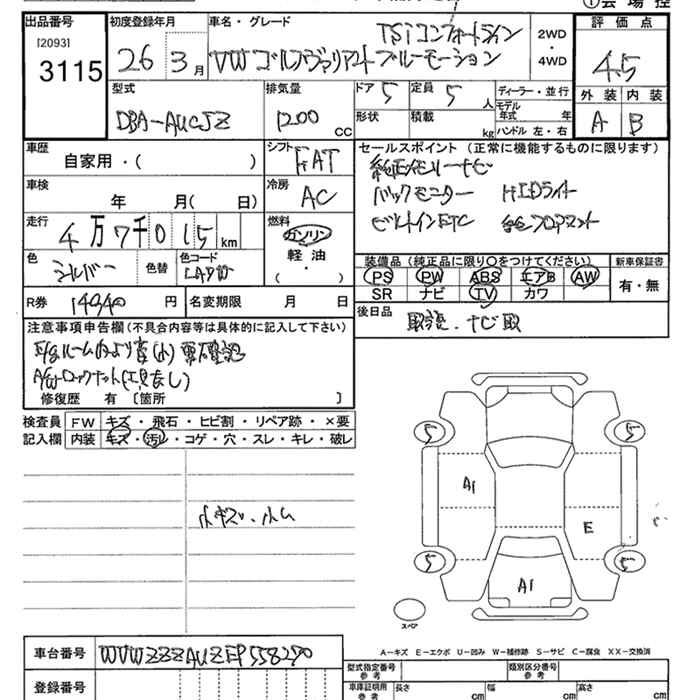 ①会 場 控
出品番号 初度登録年月 車名・グレード 評 価 点
[2093] TSIコンフォートライン 2WD
3115 26 3月 VW ゴルフヴァリアント ブルーモーション ・4WD 4.5
型式 排気量 ドア 5 定員 5 人 ディーラー・並行 外 装 内 装
モデル年式 年
DBA-AUCJZ 1200 cc 形状 積載 kg ハンドル 左・右 A B
車歴 シフト セールスポイント (正常に機能するものに限ります)
自家用・( ) FAT 純正メモリーナビ
車検 冷房 バックモニター HIDライト
年 月( 日) AC ビルトインETC 純正フロアマット
走行 燃料
4万7千015km ガソリン
色 シルバー 色替 色コード LA7W 軽 油
・( )
装備品 (純正品に限り○をつけてください) 新車保証書
PS PW ABS エアB AW 有・無
SR ナビ TV カワ
R券 14940 円 名変期限 月 日
後日品 取説・ナビ取
注意事項申告欄(不具合内容等は具体的に記入して下さい)
E/gルーム内より音(小)要確認
A/Wロックナット(工具なし)
修復歴 有 〔箇所 〕
検査員 FW キズ・飛石・ヒビ割・リペア跡・×要
記入欄 内装 キズ・汚レ・コゲ・穴・スレ・キレ・破レ
5 5
A1
小キズ・小ム
E
5 5
A1
スペア
A-キズ E-エクボ U-凹み W-補修跡 S-サビ C-腐食 XX-交換済
車台番号 WVWZZZAUZEP558290
型式指定番号 参考 類別区分番号 参考
登録番号 車庫証明用 参考 長さ cm 幅 cm 高さ cm